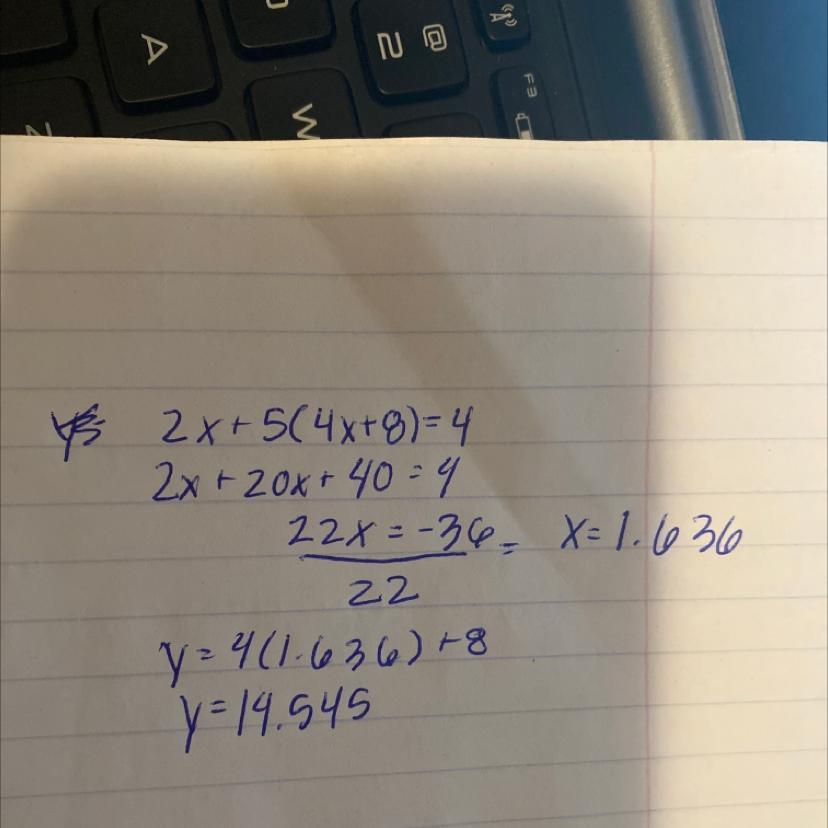 A
@
2
F3
W
2x+5(4x+8)=4
2x+20x+40=4
22x=-36= x=1.636
22
y=4(1.636)+8
y=14.545